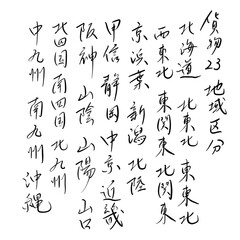 貨物23地域区分
北海道 北東北 東東北
西東北 北関東 東関東
京浜葉 新潟 北陸
甲信 静岡 中京 近畿
阪神 山陰 山陽 山口
北四国 南四国 北九州
中九州 南九州 沖縄